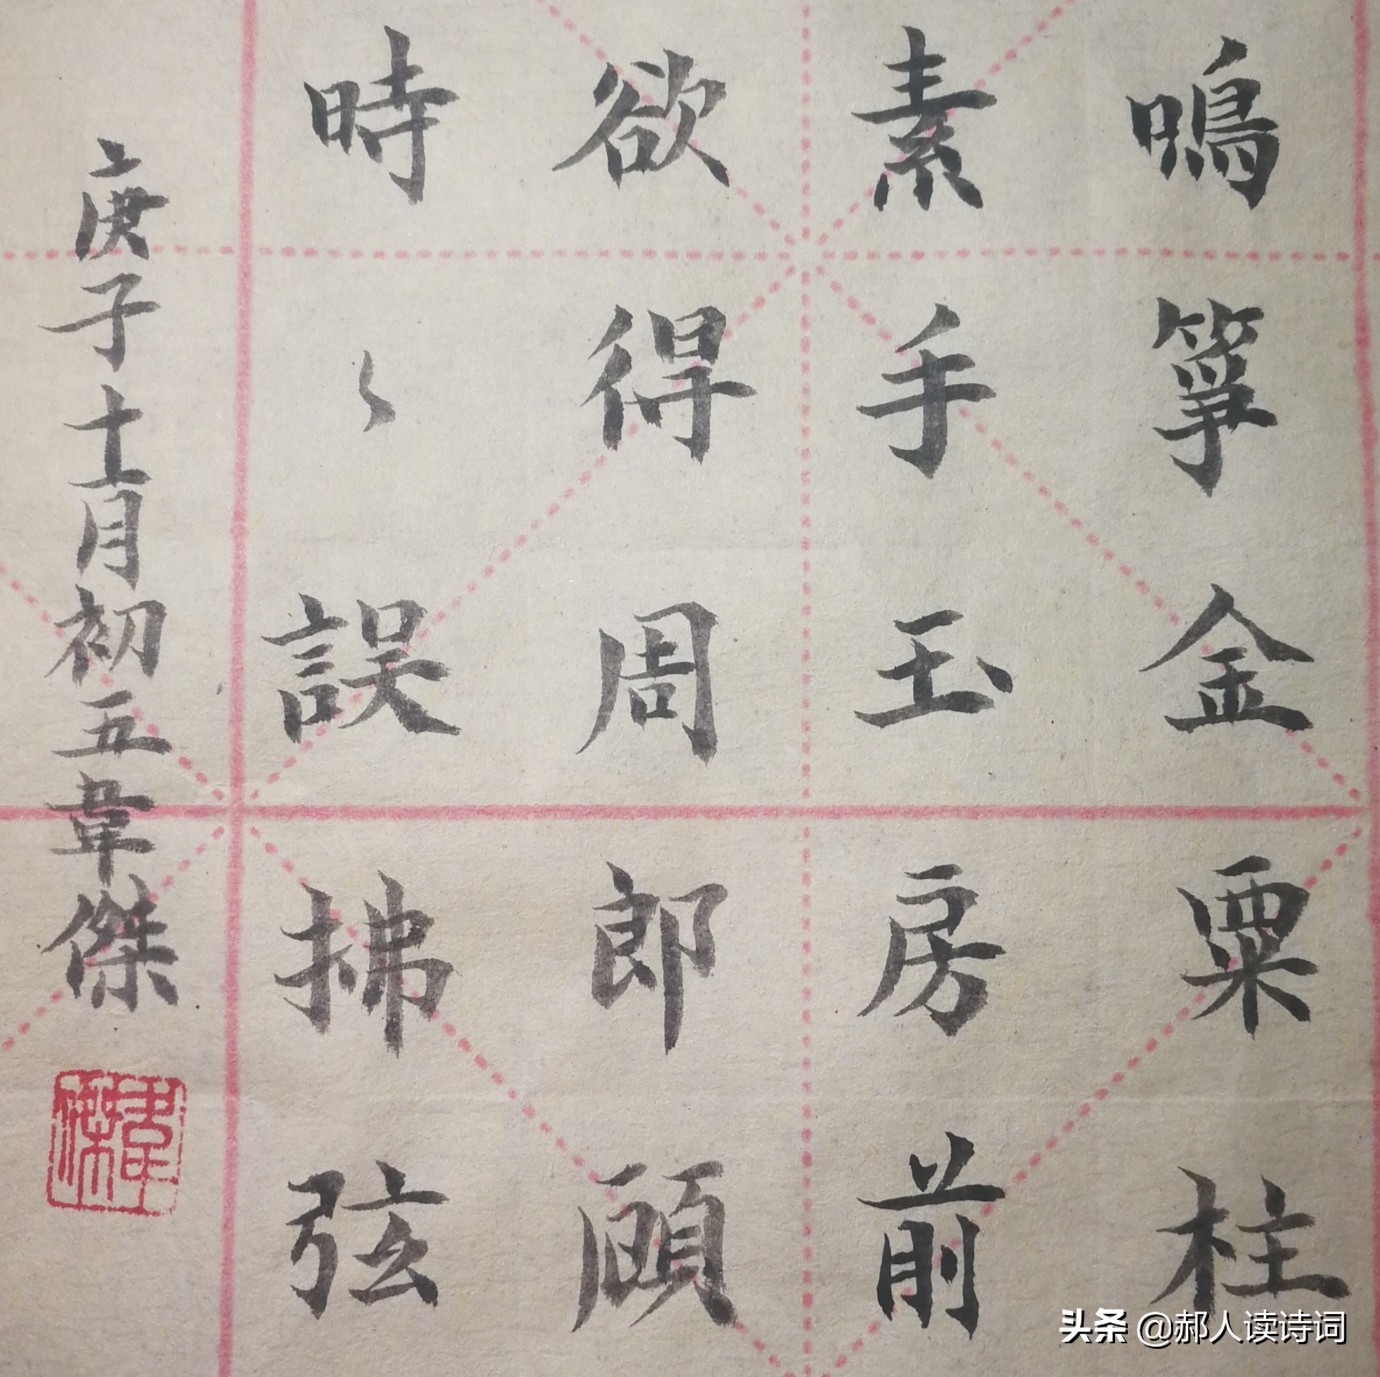 鳴箏金粟柱
素手玉房前
欲得周郎顧
時〻誤拂弦
庚子十一月初五韋傑
韋傑
头条 @郝人读诗词